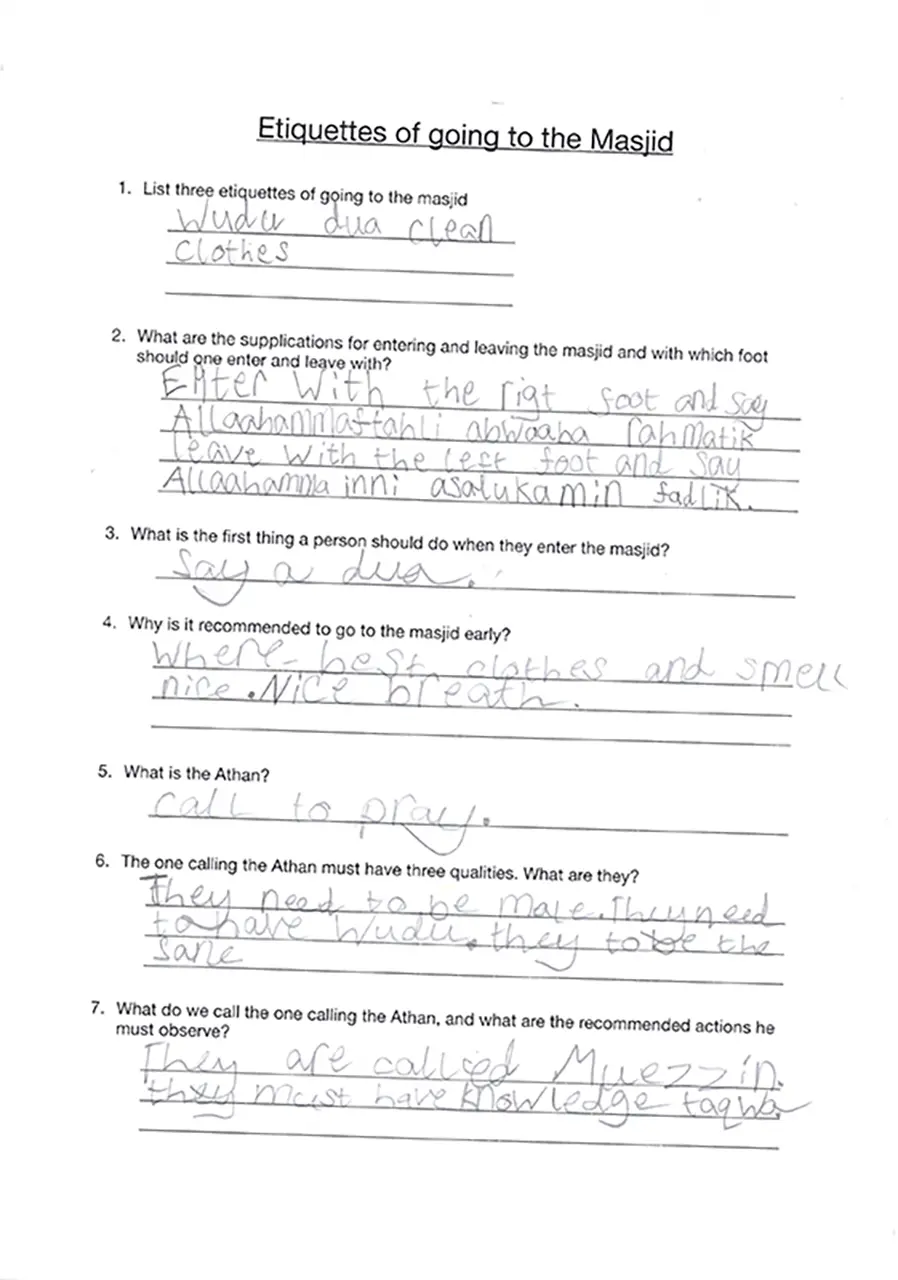 Etiquettes of going to the Masjid
1. List three etiquettes of going to the masjid
Wudu dua clean
clothes
2. What are the supplications for entering and leaving the masjid and with which foot
should one enter and leave with?
Enter with the rigt foot and say
Allaahammaftahli abwaaba rahmatik
leave with the left foot and say
Allaahamma inni asaluka min fadlik.
3. What is the first thing a person should do when they enter the masjid?
Say a dua.
4. Why is it recommended to go to the masjid early?
Where best clothes and smell
nice. Nice breath.
5. What is the Athan?
call to pray.
6. The one calling the Athan must have three qualities. What are they?
They need to be male. They need
to have wudu. they to be the
sane
7. What do we call the one calling the Athan, and what are the recommended actions he
must observe?
They are called Muezzin.
they must have knowledge taqwa